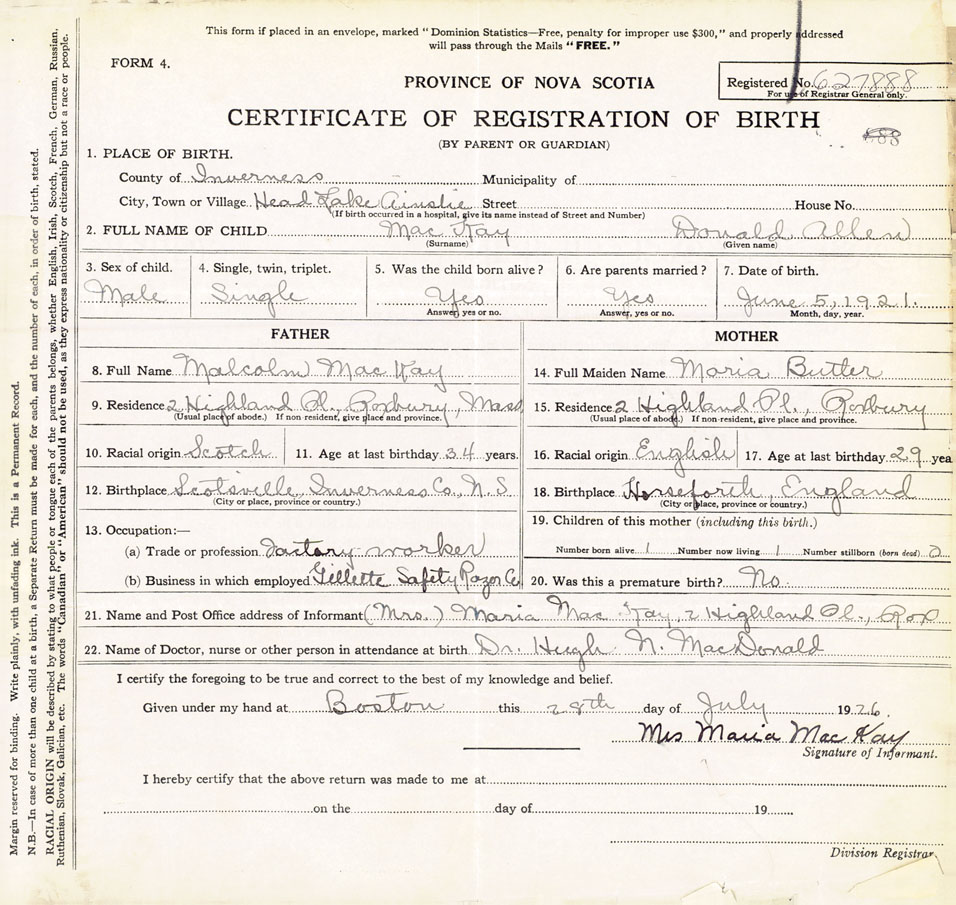 This form if placed in an envelope, marked "Dominion Statistics—Free, penalty for improper use $300," and properly addressed
will pass through the Mails "FREE."
FORM 4.
PROVINCE OF NOVA SCOTIA
Registered No. 627888
For use of Registrar General only.
CERTIFICATE OF REGISTRATION OF BIRTH
(BY PARENT OR GUARDIAN)
1. PLACE OF BIRTH.
County of Inverness Municipality of
City, Town or Village Head Lake Ainslie Street House No.
(If birth occurred in a hospital, give its name instead of Street and Number)
2. FULL NAME OF CHILD Mac Kay Donald Allen
(Surname) (Given name)
3. Sex of child. 4. Single, twin, triplet. 5. Was the child born alive? 6. Are parents married? 7. Date of birth.
Male Single Yes Yes June 5, 1921.
Answer, yes or no. Answer, yes or no. Month, day, year.
FATHER MOTHER
8. Full Name Malcolm Mac Kay 14. Full Maiden Name Maria Butler
9. Residence 2 Highland Pl., Roxbury, Mass 15. Residence 2 Highland Pl., Roxbury
(Usual place of abode.) If non-resident, give place and province. (Usual place of abode.) If non-resident, give place and province.
10. Racial origin Scotch 11. Age at last birthday 34 years. 16. Racial origin English 17. Age at last birthday 29 yea
12. Birthplace Scotsville, Inverness Co., N. S 18. Birthplace Horseforth, England
(City or place, province or country.) (City or place, province or country.)
13. Occupation:— 19. Children of this mother (including this birth.)
(a) Trade or profession Factory worker Number born alive 1 Number now living 1 Number stillborn (born dead)
(b) Business in which employed Gillette Safety Razor Co 20. Was this a premature birth? No.
21. Name and Post Office address of Informant (Mrs.) Maria Mac Kay, 2 Highland Pl., Rox
22. Name of Doctor, nurse or other person in attendance at birth Dr. Hugh N. MacDonald
I certify the foregoing to be true and correct to the best of my knowledge and belief.
Given under my hand at Boston this 28th day of July 1926.
Mrs Maria Mac Kay
Signature of Informant.
I hereby certify that the above return was made to me at
on the day of 19
Division Registrar
Margin reserved for binding. Write plainly, with unfading ink. This is a Permanent Record.
N.B.—In case of more than one child at a birth, a Separate Return must be made for each, and the number of each, in order of birth, stated.
RACIAL ORIGIN will be described by stating to what people or tongue each of the parents belongs, whether English, Irish, Scotch, French, German, Russian,
Ruthenian, Slovak, Galician, etc. The words "Canadian" or "American" should not be used, as they express nationality or citizenship but not a race or people.